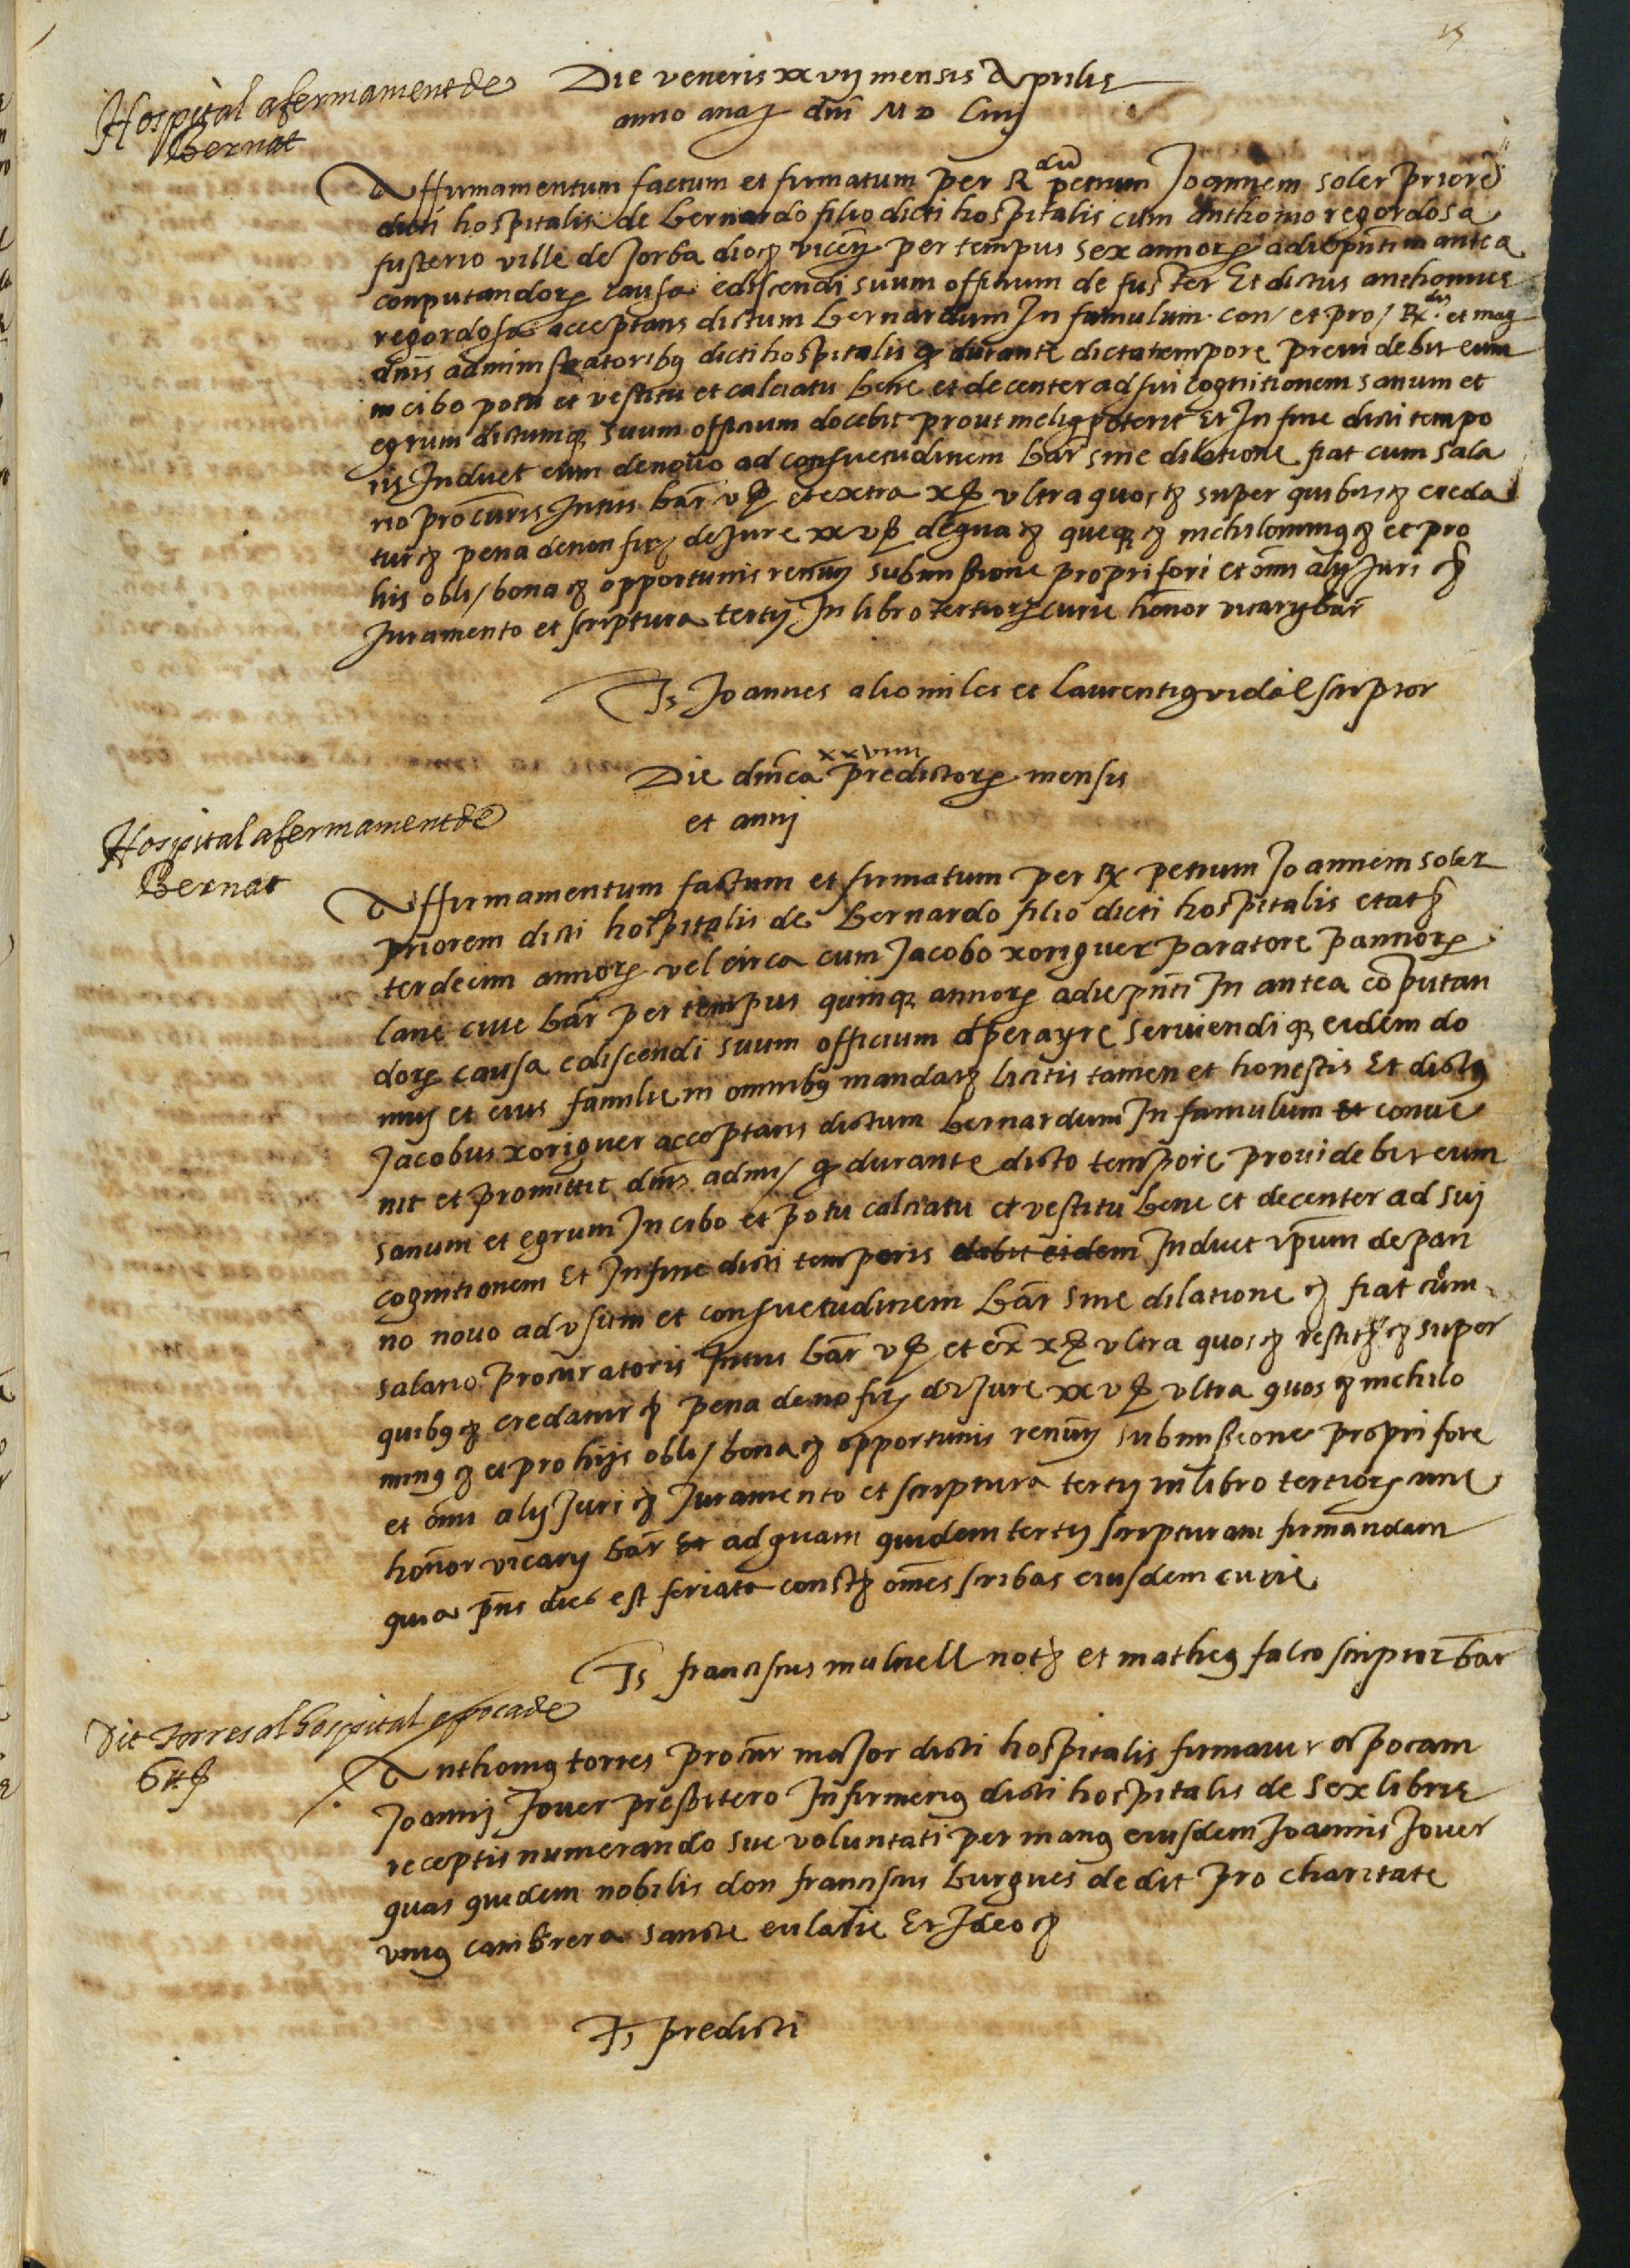 Hospital afermament de
Bernat
Die veneris xxvij mensis Aprilis
anno a nat dni M D Liiij
Affirmamentum factum et firmatum per Rdu petrum Joannem soler priorē
dicti hospitalis de bernardo filio dicti hospitalis cum anthonio regordosa
fusterio ville de Jorba dioc vicen per tempus sex annor adie pnti in antea
conputandor causa ediscendi suum offitium de fuster Et dictus anthonius
regordosa acceptans dictum bernardum In famulum con/ et pro/ Rdis et mag
dnis administratoribus dicti hospitalis q durante dicta tempore previdebit eum
in cibo potu et vestitu et calciatu bene et decenter ad sui cognitionem sanum et
egrum dictumq suum officium docebit prout melius poterit Et In fine dicti tempo
ris Induet eum denovo ad consuetudinem bar sine dilatione fiat cum sala
rio procuris Intus bar v s et extra x s vltra quos super quibus creda
tur pena de non fir de Jure xxv s de qua queq nichilominus et pro
his obli/ bona opportunis renuns submissione propri fori et omi alij Juri
Juramento et scriptura tertij In libro tertior curie honor vicarij bar
Ts Joannes alio miles et laurentius vidal scriptor
Die dnica xxviiii predictor mensis
et anni
Hospital afermament de
Bernat
Affirmamentum factum et firmatum per R petrum Joannem soler
priorem dicti hospitalis de bernardo filio dicti hospitalis etat
terdecim annor vel circa cum Jacobo xoriguer paratore pannor
lane cive bar per tempus quinq annor adie pnti In antea cōputan
dor causa ediscendi suum officium d perayre serviendi q eidem do
mus et eius familie in omnibus mandat licitis tamen et honestis Et dictus
Jacobus xoriguer acceptans dictum bernardum In famulum et conve
nit et promittit dnis admi/ q durante dicto tempore providebit eum
sanum et egrum In cibo et potu calciatu et vestitu bene et decenter ad sui
cognitionem Et In fine dicti temporis dabit eidem Induet ipsum de pan
no novo ad vsum et consuetudinem bar sine dilatione fiat cum
salario procuratoris Intus bar v s et ex x s vltra quos restit super
quibus credatur pena de no fir de Jure xxv s vltra quos nichilo
minus et pro hijs obli/ bona opportunis renuns submissione propri fore
et omi alij Juri Juramento et scriptura tertij in libro tertior curie
honor vicarij bar et ad quam quidem tertij scripturam firmandam
quia pns dies est feriata const omes scribas eiusdem curie
Ts franciscus mulnell not et matheus falco scriptor bar
Dit torres al hospital apoca de
6 ll s
Anthonius torres procur major dicti hospitalis firmavit apocam
Joanni Jover presbitero Infirmerius dicti hospitalis de sex libris
receptis numerando sue voluntati per manus eiusdem Joannis Jover
quas quidem nobilis don franciscus burgues dedit pro charitate
vnius cambrera sancte eulalie Et Ideo
Ts predicti